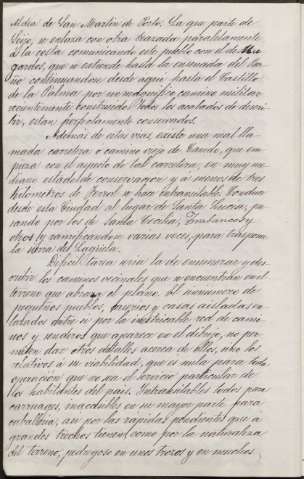 Aldea de San Martín de Porto. La que parte de
Seijo, se enlaza con otra trazada paralelamente
á la costa comunicando este pueblo con el de Mu-
gardos, que se estiende hasta la ensenada del Ba-
ño continuandose desde aqui hasta el Castillo
de la Palma por un magnífico camino militar
recientemente construido. Todos los acabados de descri-
bir, estan perfectamente conservados.
Además de estas vias, existe una mal lla-
mada carretera o camino viejo de Cando, que em-
pieza con el aspecto de tal carretera, en muy me-
diano estado de conservacion y á menos de tres
kilometros de Ferrol se hace intransitable. Conduce
desde esta Ciudad al lugar de Santa Marina, pa-
sando por los de Santa Cecilia,
otros y ramificandose varias veces, para trasponer
la sierra del
Dificil tarea seria la de enumerar y des-
cribir los caminos vecinales que se encuentran en el
terreno que abraza el plano. Del sinnumero de
pequeños pueblos, caserios y casas aisladas en-
lazados entre si por la inestricable red de cami-
nos y senderos que aparece en el dibujo, no per-
miten dar otros detalles acerca de ellos, sino los
relativos á su viabilidad, que es nula para toda
operacion que no sea el servicio particular de
los habitantes del pais. Intransitables todos para
carruages, inaccesibles en su mayor parte para
caballeria, asi por las rapidas pendientes que á
grandes trechos tienen, como por la naturaleza
del terreno, pedregoso en unos trozos y en muchos